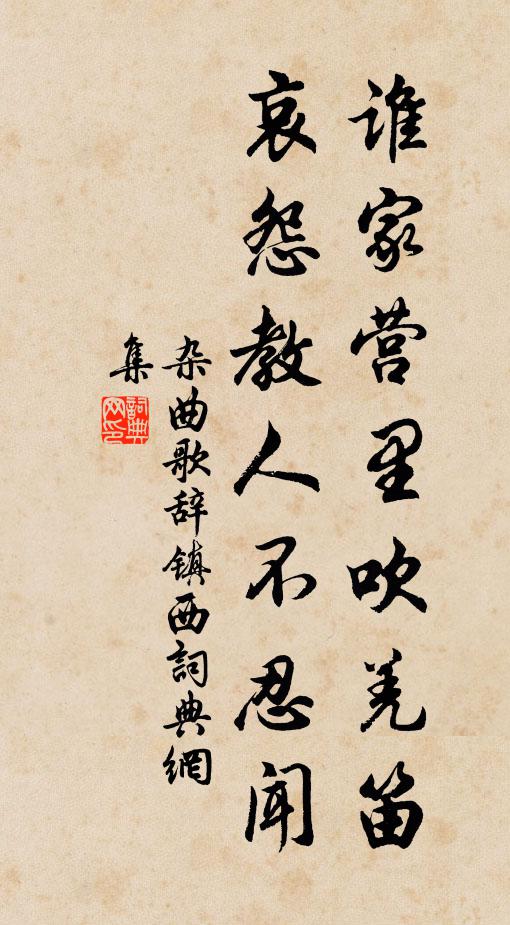 谁家营里吹羌笛
哀怨教人不忍闻
杂曲歌辞镇西詞典網
集
詞典网印